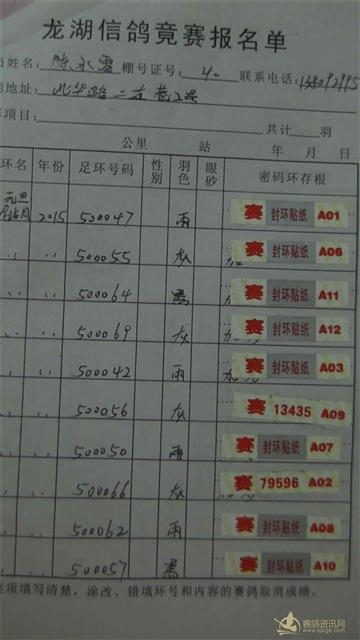 龙湖信鸽竞赛报名单
姓名: 陈永雪 棚号证号: 40 联系电话:
地址: 北华路二古巷2号
项目: 共计 羽
公里 站 年 月 日
环名 年份 足环号码 性别 羽色 眼砂 密码环存根
元旦 2015 500047 雨 赛 封环贴纸 A01
〃 〃 500055 灰 赛 封环贴纸 A06
〃 〃 500064 黑 赛 封环贴纸 A11
〃 〃 500069 灰 赛 封环贴纸 A12
〃 〃 500042 雨 赛 封环贴纸 A03
〃 〃 500056 灰 赛 13435 A09
〃 〃 500050 雨 赛 封环贴纸 A07
〃 〃 500066 灰 赛 79596 A02
〃 〃 500062 雨 赛 封环贴纸 A08
〃 〃 500057 黑 赛 封环贴纸 A10
项填写清楚，涂改、错填环号和内容的赛鸽取消成绩。
赛鸽资讯网
www.saige.com